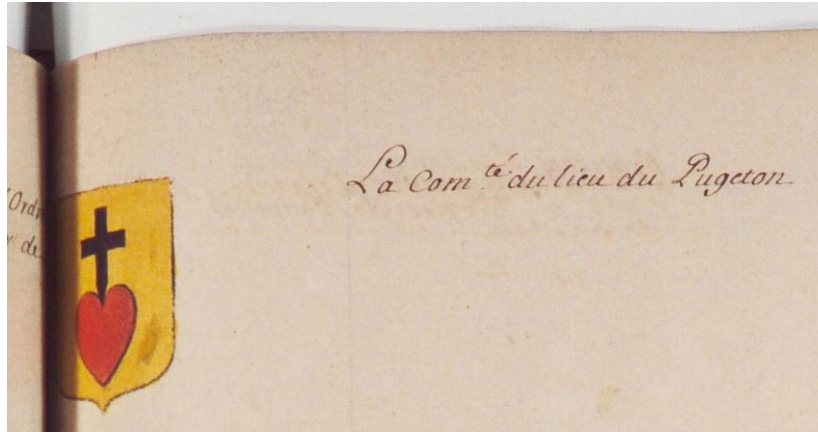 Ordr
de
La Com.té du lieu du Pugeton